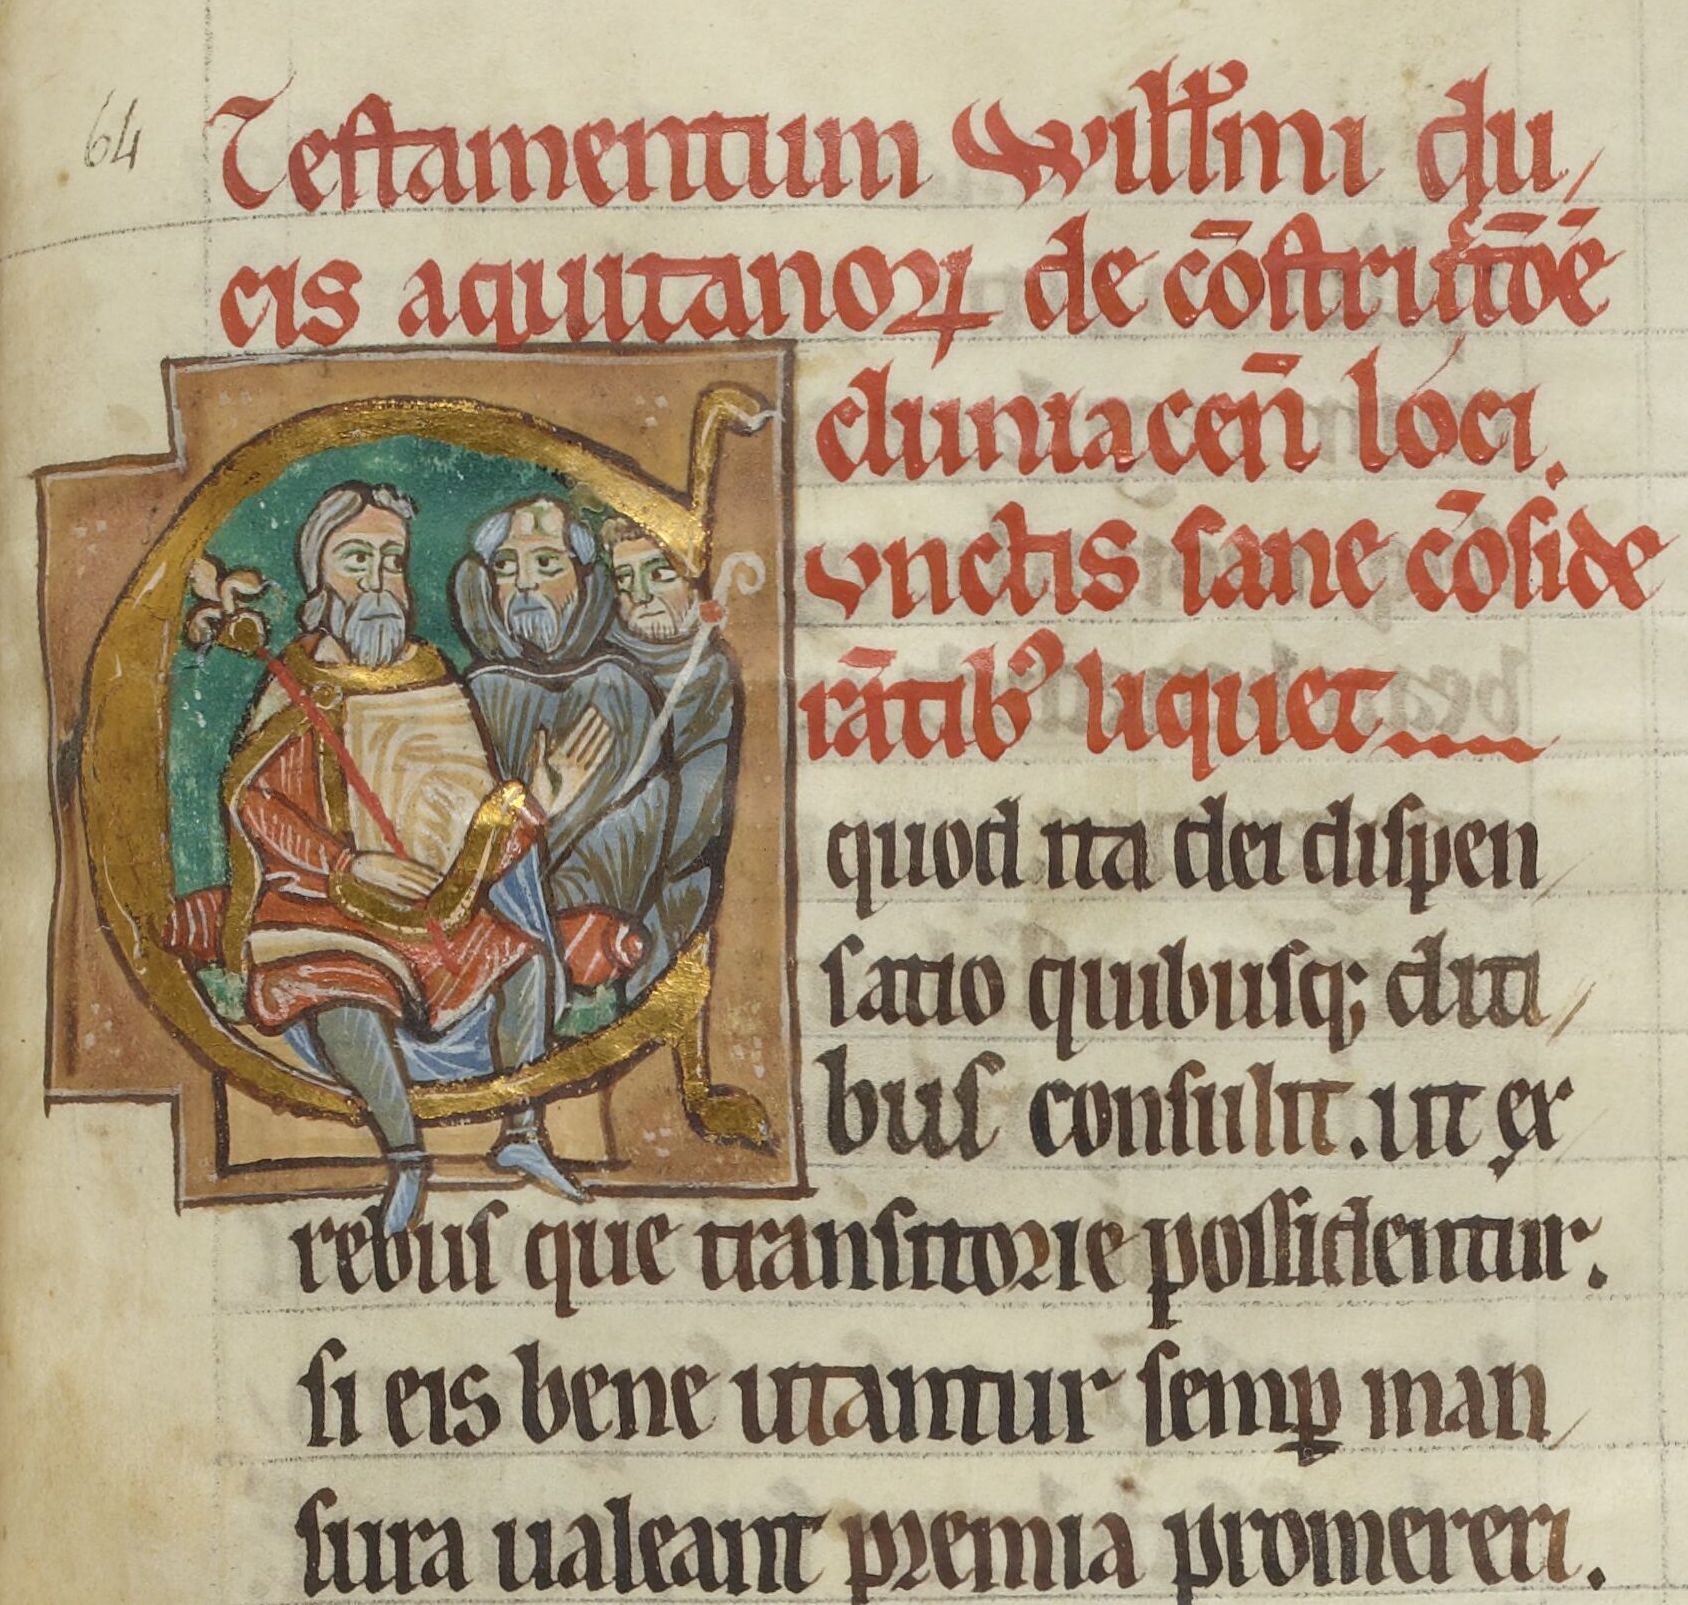 64
Testamentum Willmi du
cis aquitanoꝝ de cōstructōē
cluniaceñ loci.
Cunctis sane cōside
rātibꝰ liquet
quod ita dei dispen
satio quibusqꝫ diti
bus consulit. ut ex
rebus que transitorie possidentur.
si eis bene utantur semꝑ man
sura ualeant premia promereri.